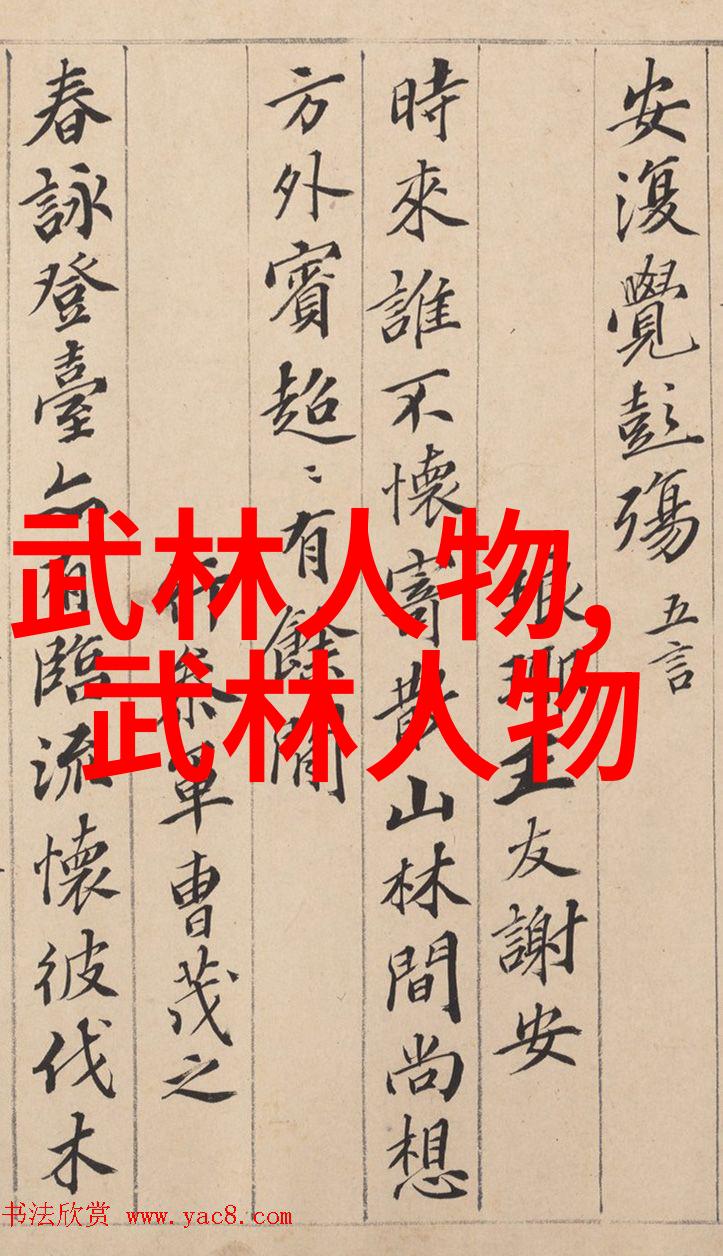 安復覺彭殤 五言
琅琊王友謝安
時來誰不懷寄散山林間尚想
方外賓超〻有餘閒
行參軍曹茂之
春詠登臺亦有臨流懷彼伐木
武林人物,
武林人物
书法欣赏 www.yac8.com